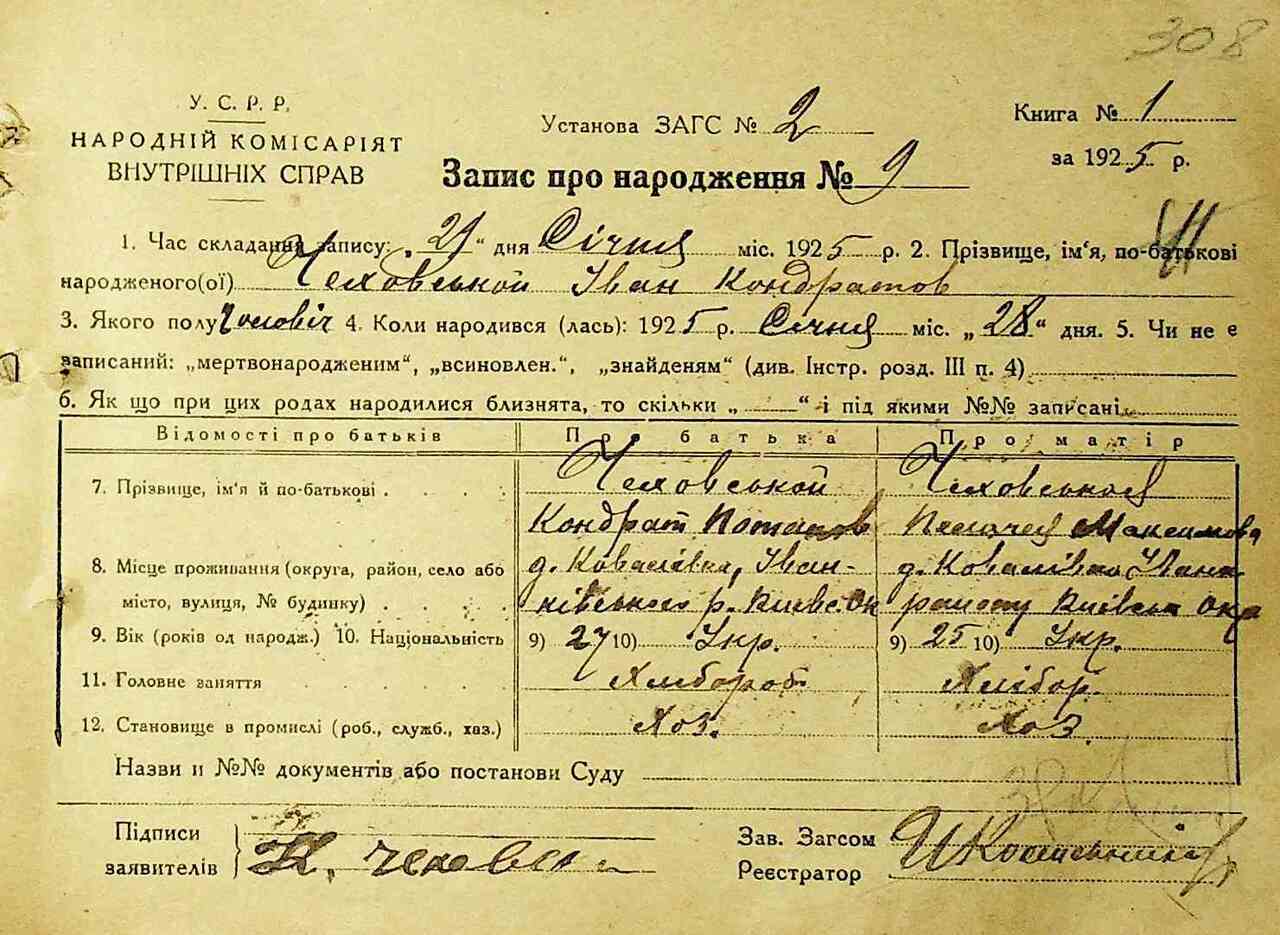 308
У. С. Р. Р.
НАРОДНІЙ КОМІСАРІЯТ
ВНУТРІШНІХ СПРАВ
Установа ЗАГС № 2
Книга № 1
за 1925 р.
Запис про народження № 9
1. Час складання запису: „ 29 “ дня Січня міс. 1925 р. 2. Прізвище, ім‘я, по-батькові
народженого(ої) Чеховської Іван Кондратов
3. Якого полу Чоловіч 4. Коли народився (лась): 1925 р. Січня міс. „ 28 “ дня. 5. Чи не є
записаний: „мертвонародженим“, „всиновлен.“, „знайденям“ (див. Інстр. розд. III п. 4)
6. Як що при цих родах народилися близнята, то скільки „ “ і під якими №№ записані
Відомості про батьків Про батька Про матір
7. Прізвище, ім'я й по-батькові Чеховської Чеховська
Кондрат Потапов Максимова
8. Місце проживання (округа, район, село або д. Ковалівка, Іван- д. Ковалівка Іван
місто, вулиця, № будинку) ківського р. Київс Ок району Київськ Окр
9. Вік (років од народж.) 10. Національність 9) 27 10) Укр. 9) 25 10) Укр.
11. Головне заняття Хлібороб Хлібор.
12. Становище в промислі (роб., служб., хаз.) Хоз. Хоз.
Назви и №№ документів або постанови Суду
Підписи
заявителів К. Чеховск
Зав. Загсом
Реєстратор